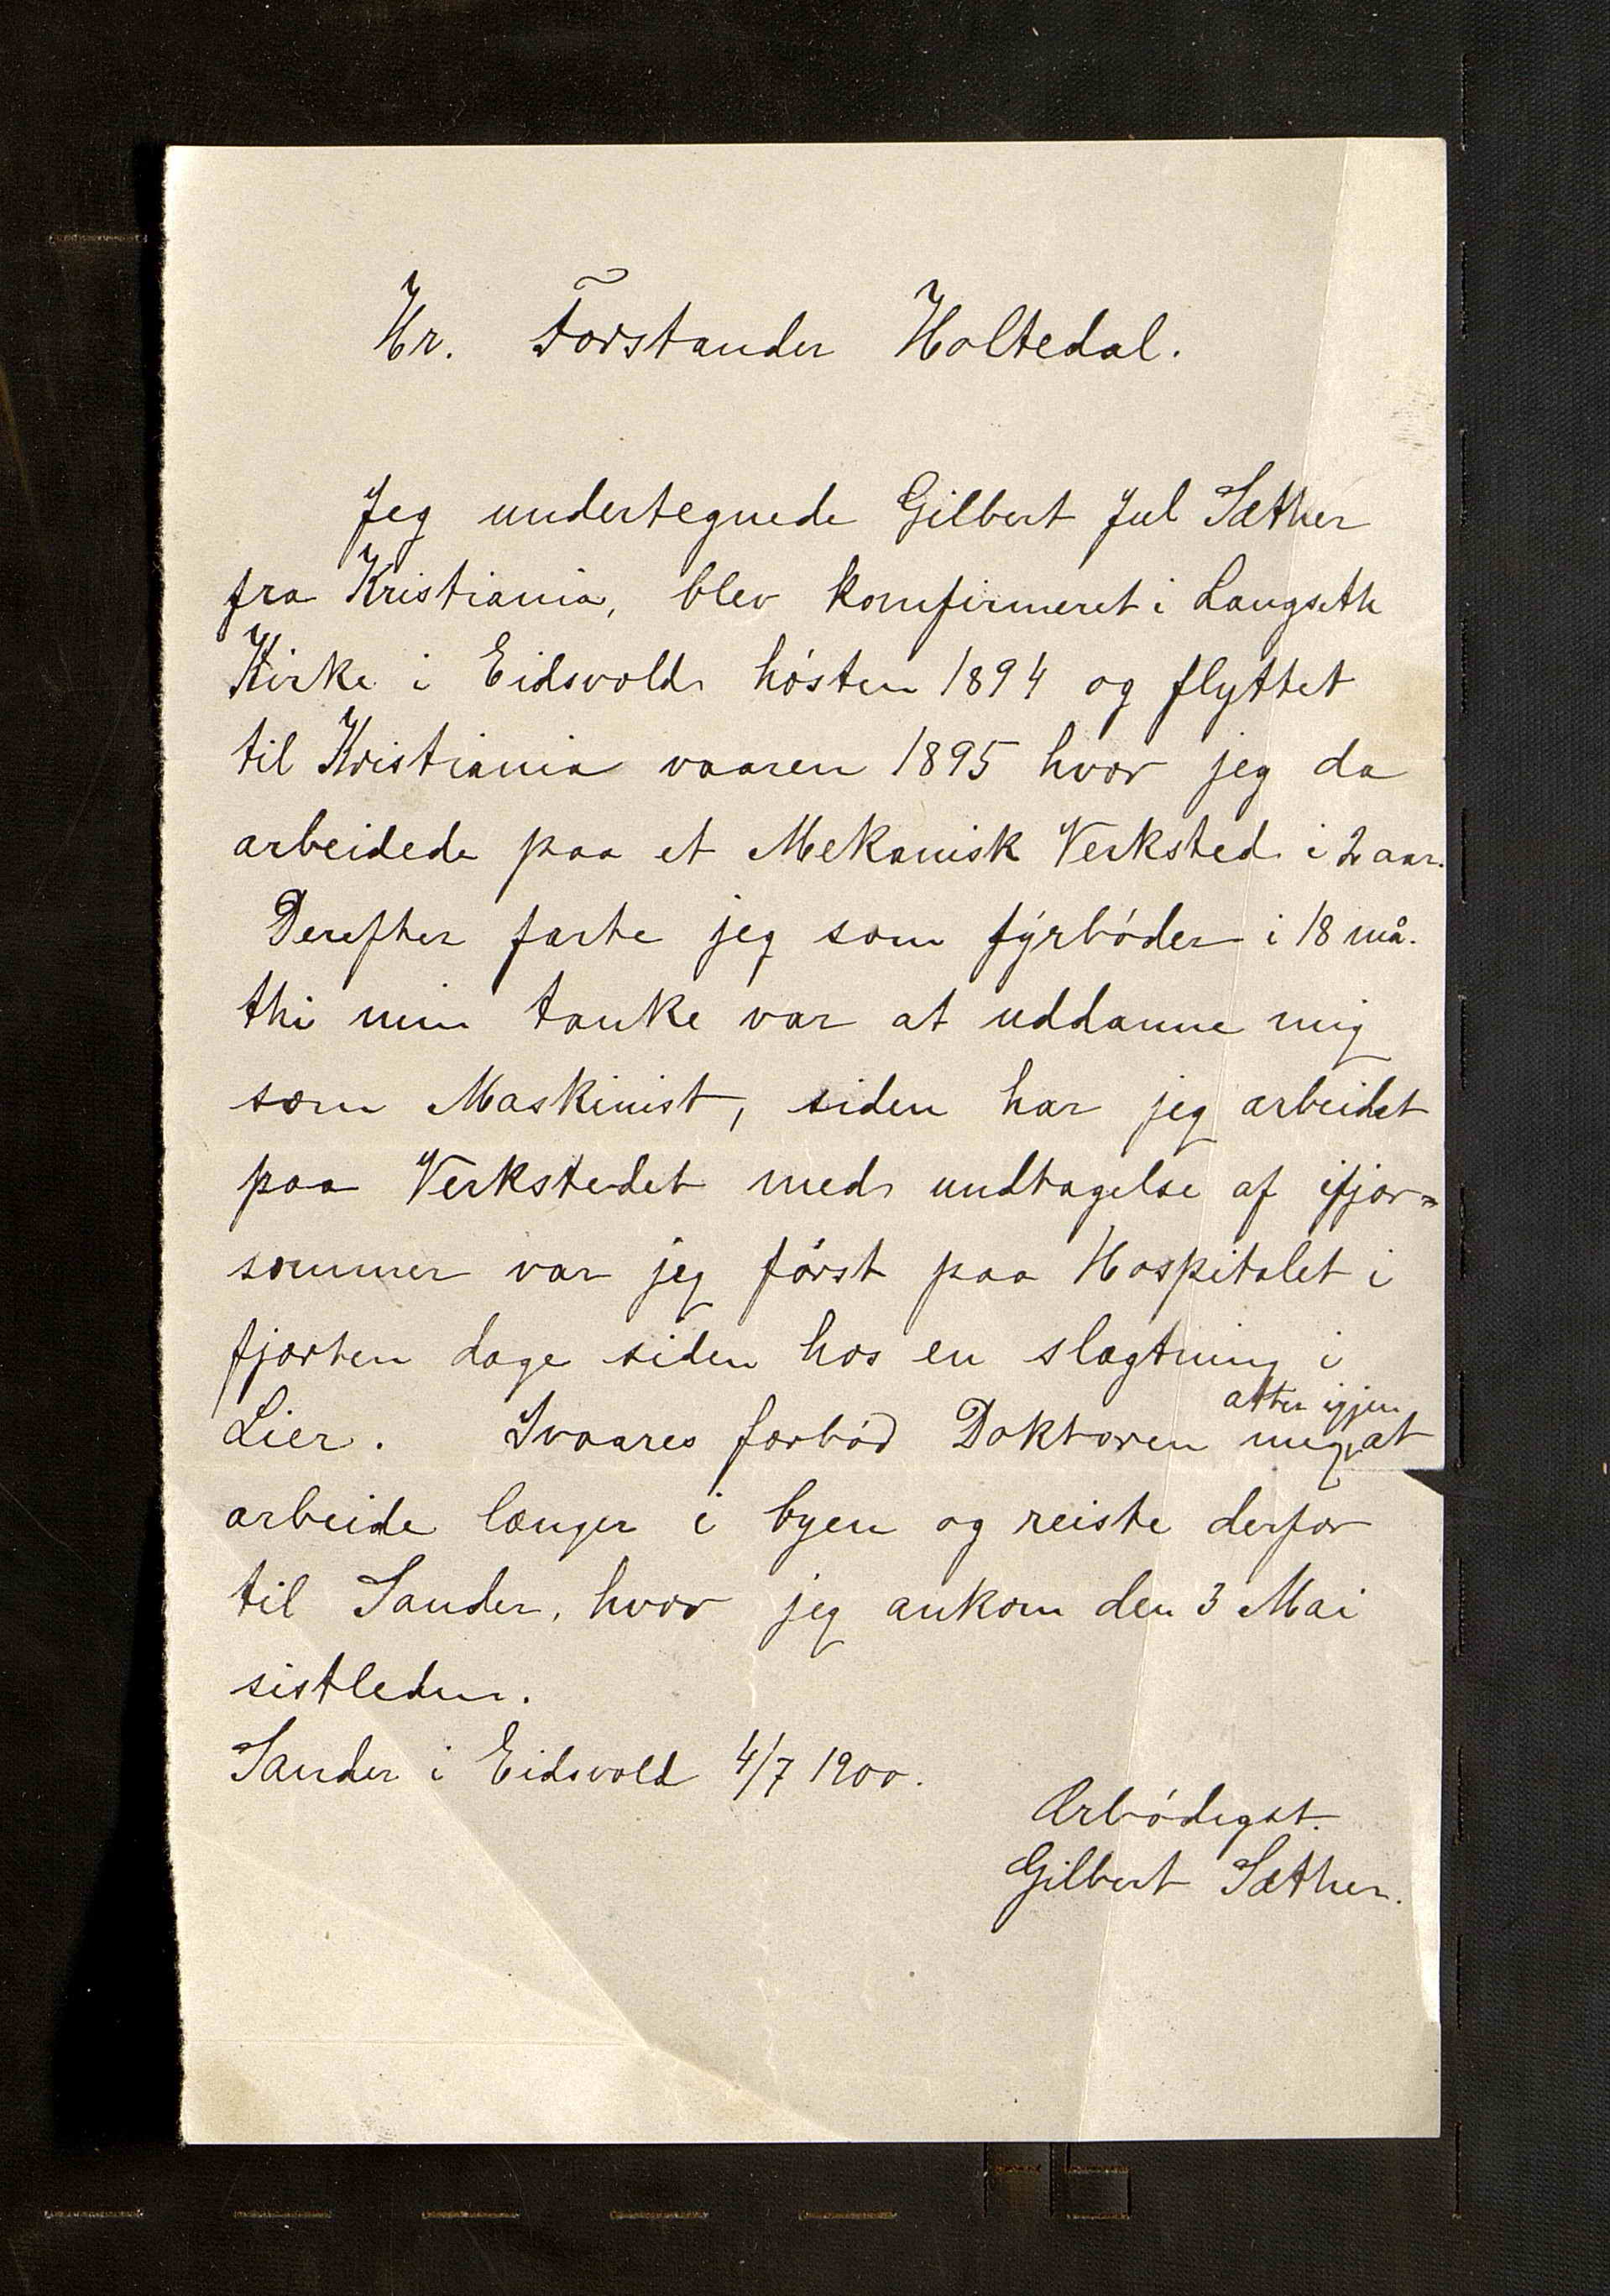 Hr. Forstander Holtedal.
Jeg undertegnede Gilbert Jul Sæther
fra Kristiania, blev komfirmeret i Langseth
Kirke i Eidsvold hösten 1894 og flyttet
til Kristiania vaaren 1895 hvor jeg da
arbeidede paa et Mekanisk Verksted i 2 aar.
Derefter farte jeg som fyrböder i 18 må.
thi min tanke var at uddanne mig
som Maskinist, siden har jeg arbeidet
paa Verkstedet med undtagelse af ifjor=
sommer var jeg först paa Hospitalet i
fjorten dage siden hos en slægtning i
atter igjen
Lier. Ivaares forböd Doktoren mig at
arbeide længer i byen og reiste derfor
til Sander, hvor jeg ankom den 3 Mai
sistleden.
Sander i Eidsvold 4/7 1900.
Ærbödigst.
Gilbert Sæther.